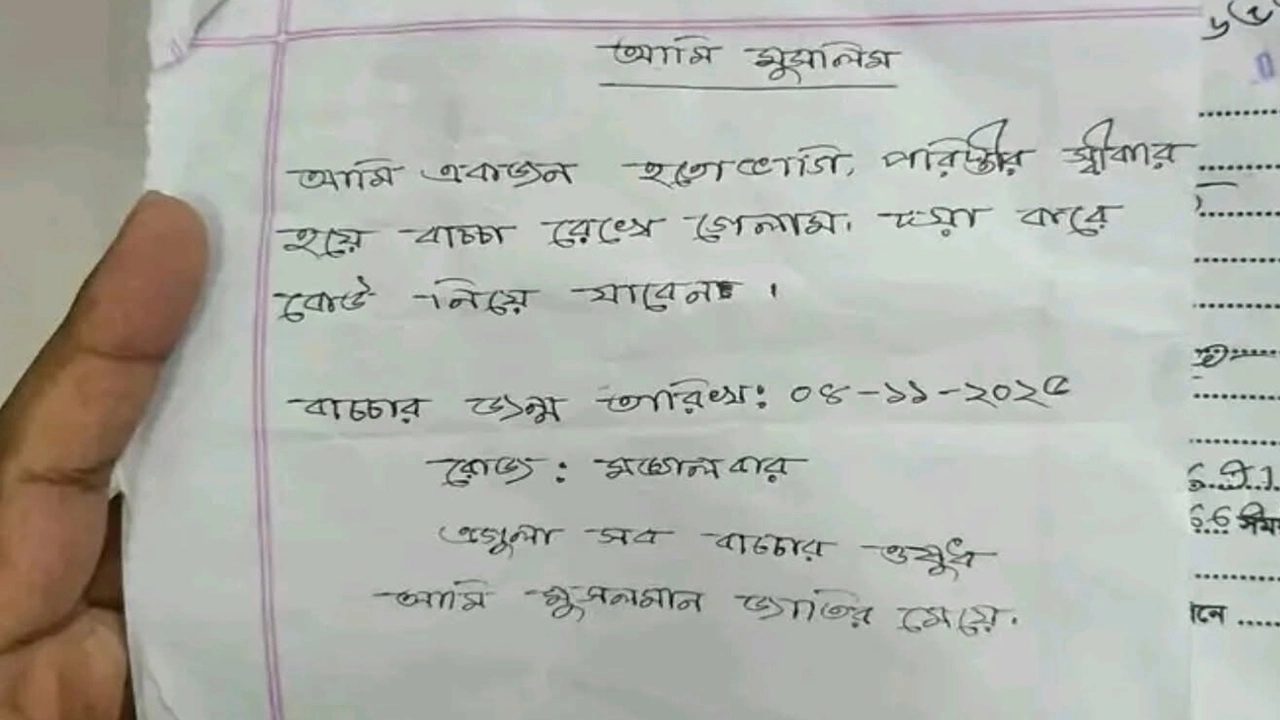 আমি মুসলিম
আমি একজন হতোভাগি, পরিস্তীর স্বীকার
হয়ে বাচ্চা রেখে গেলাম, দয়া করে
কেউ নিয়ে যাবেন।
বাচ্চার জন্ম তারিখ: ০৪-১১-২০২৫
রোজ : মঙ্গোলবার
এগুলা সব বাচ্চার ওষুধ
আমি মুসলমান জাতির মেয়ে.